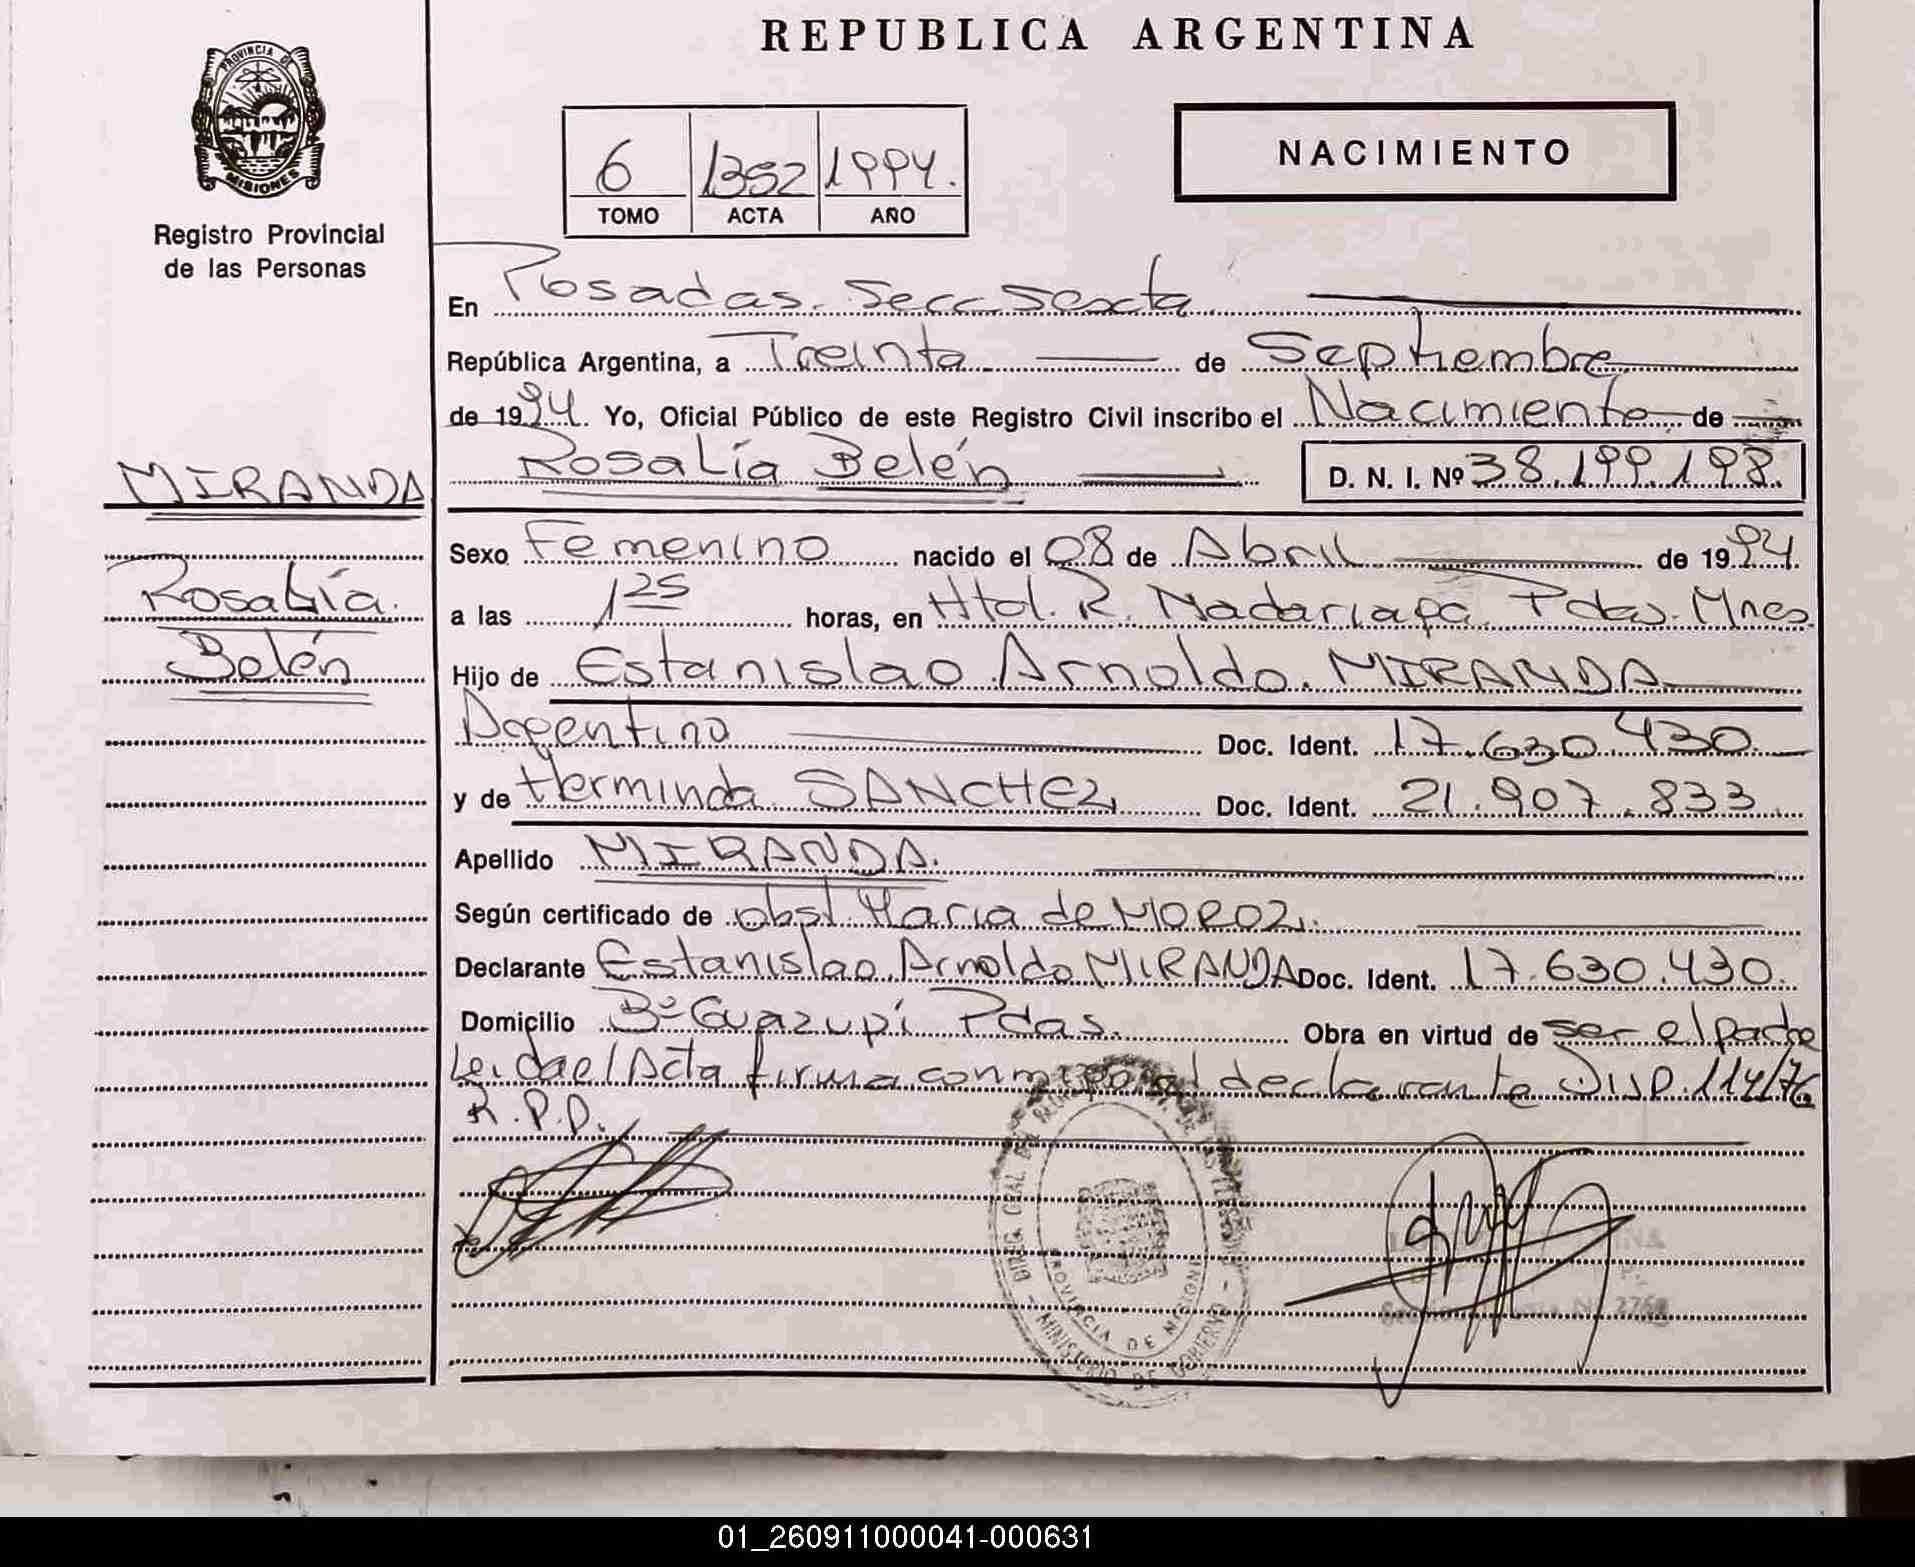 REPUBLICA ARGENTINA
PROVINCIA DE
MISIONES
Registro Provincial
de las Personas
6 1352 1994.
TOMO ACTA AÑO
NACIMIENTO
En Posadas. Secc Sexta
República Argentina, a Treinta de Septiembre
de 1994. Yo, Oficial Público de este Registro Civil inscribo el Nacimiento de
MIRANDA
Rosalía Belén D. N. I. Nº 38.199.198.
Sexo Femenino nacido el 08 de Abril de 1994.
Rosalía.
Belén
a las 1 25 horas, en Htal. R. Madariaga Pdas. Mnes.
Hijo de Estanislao Arnoldo. MIRANDA
Argentino Doc. Ident. 17.630.430.
y de Herminda SANCHEZ, Doc. Ident. 21.907.833.
Apellido MIRANDA.
Según certificado de obst. Maria de MOROZ.
Declarante Estanislao Arnoldo MIRANDA Doc. Ident. 17.630.430.
Domicilio Bº Guazupi Pdas. Obra en virtud de ser el padre
Leida el Acta firma conmigo el declarante Disp. 114/76
R.P.P.
PROVINCIA DE MISIONES
MINISTERIO DE GOBIERNO
01_260911000041-000631